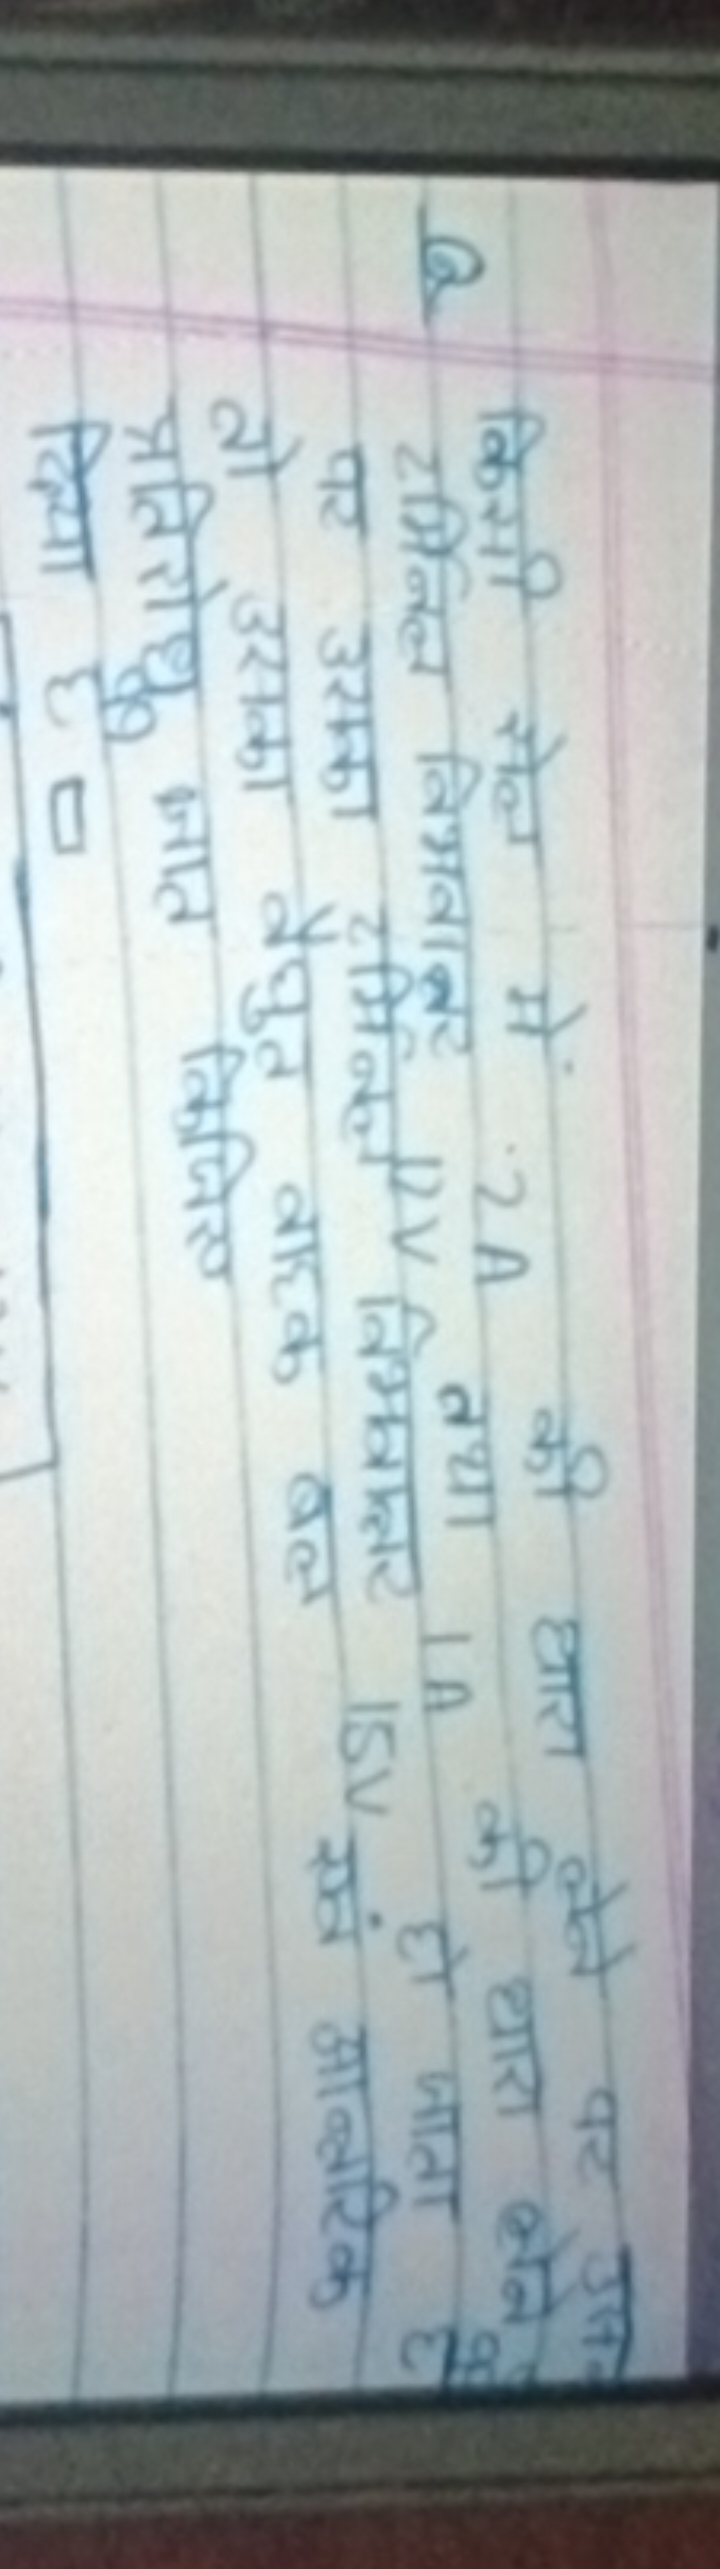 Q किसी सेल में 2A की धारा लेने पर उसका
टर्मिनल विभवान्तर 12V तथा 1A की धारा लेने
पर उसका टर्मिनल विभवान्तर 15V हो जाता है
तो उसका वैधुत वाहक बल एवं आन्तरिक
प्रतिरोध ज्ञात किजिए
दिया है